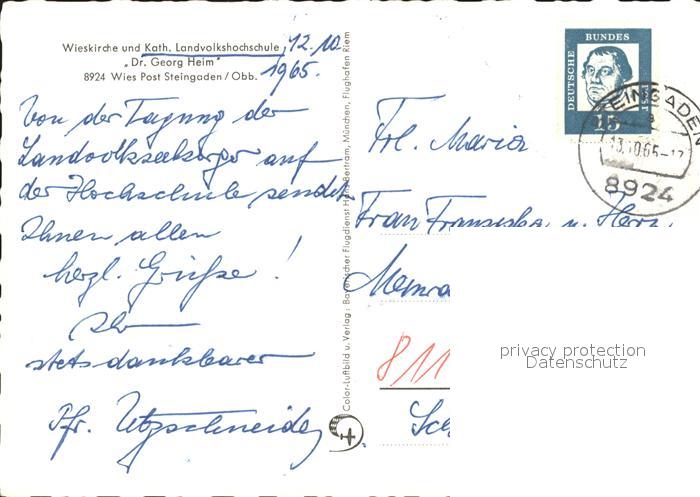 Wieskirche und Kath. Landvolkshochschule, 12.10.
„Dr. Georg Heim"
8924 Wies Post Steingaden/Obb. 1965.
Von der Tagung der
Landvolkseelsorger auf
der Hochschule senden
Ihnen allen
herzl. Grüsse!
Ihr
stets dankbarer
Pfr. Utzschneider
Color-Luftbild u. Verlag: Bayerischer Flugdienst Hans Bertram, München, Flughafen Riem
DEUTSCHE BUNDES
15
STEINGADEN
13.10.65-17
8924
Frl. Maria
Frau Franziska u. Herr
811
privacy protection
Datenschutz